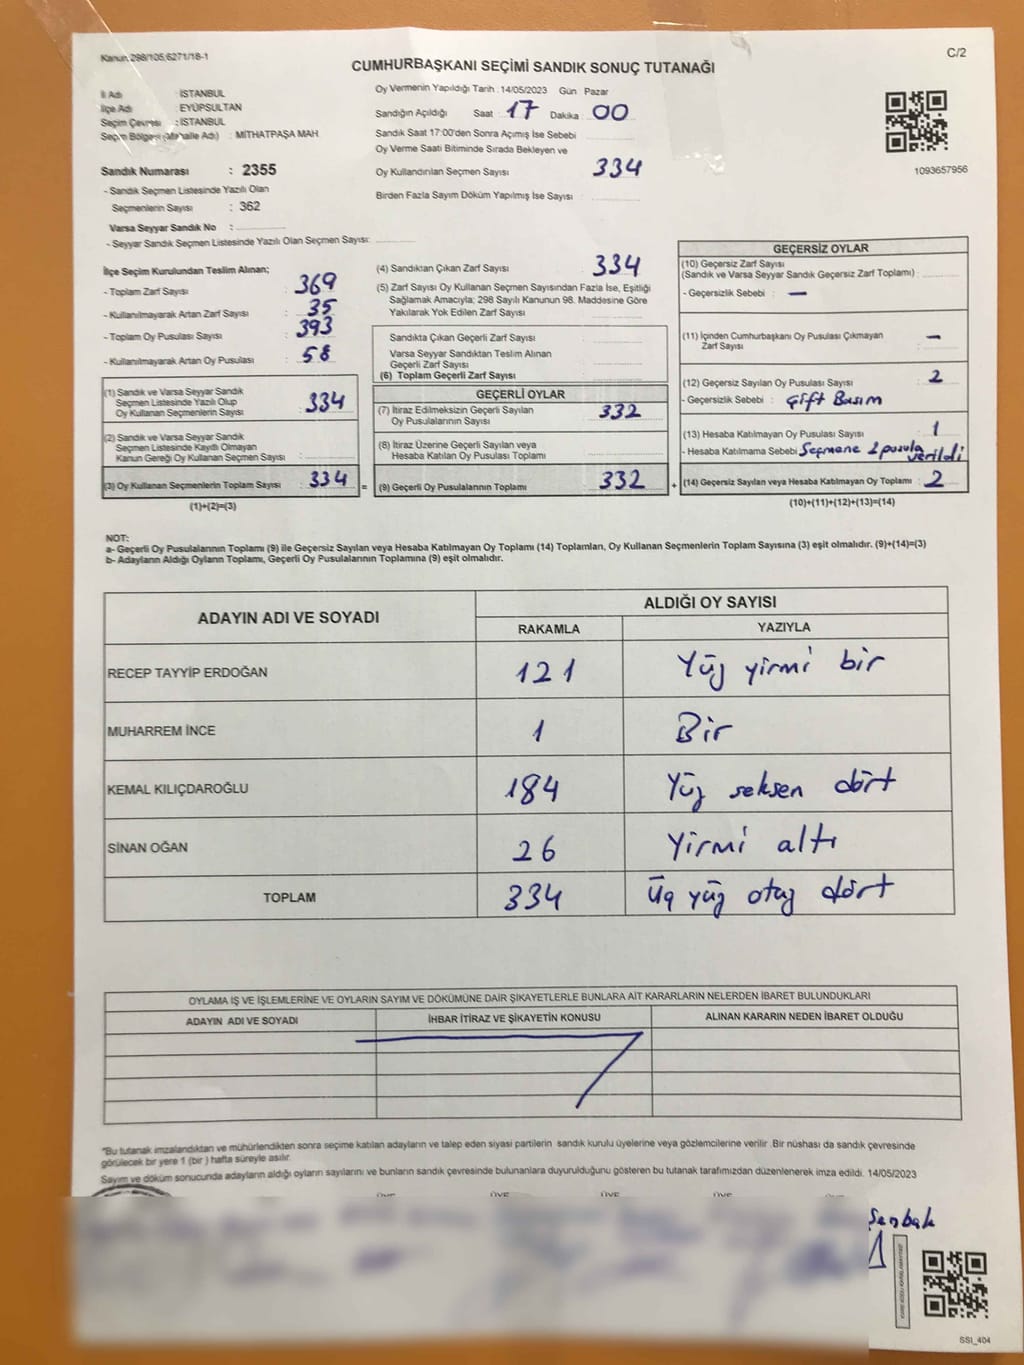 Kanun:298/105;6271/18-1
C/2
CUMHURBAŞKANI SEÇİMİ SANDIK SONUÇ TUTANAĞI
İl Adı : İSTANBUL
İlçe Adı : EYÜPSULTAN
Seçim Çevresi : İSTANBUL
Seçim Bölgesi (Mahalle Adı) : MİTHATPAŞA MAH
Sandık Numarası : 2355
- Sandık Seçmen Listesinde Yazılı Olan
Seçmenlerin Sayısı : 362
Varsa Seyyar Sandık No :
- Seyyar Sandık Seçmen Listesinde Yazılı Olan Seçmen Sayısı:
Oy Vermenin Yapıldığı Tarih : 14/05/2023 Gün Pazar
Sandığın Açıldığı Saat 17 Dakika 00
Sandık Saat 17:00'den Sonra Açımış İse Sebebi
Oy Verme Saati Bitiminde Sırada Bekleyen ve
Oy Kullandırılan Seçmen Sayısı 334
Birden Fazla Sayım Döküm Yapılmış İse Sayısı
1093657956
İlçe Seçim Kurulundan Teslim Alınan;
- Toplam Zarf Sayısı : 369
- Kullanılmayarak Artan Zarf Sayısı : 35
- Toplam Oy Pusulası Sayısı : 393
- Kullanılmayarak Artan Oy Pusulası : 58
(1) Sandık ve Varsa Seyyar Sandık
Seçmen Listesinde Yazılı Olup
Oy Kullanan Seçmenlerin Sayısı : 334
(2) Sandık ve Varsa Seyyar Sandık
Seçmen Listesinde Kayıtlı Olmayan
Kanun Gereği Oy Kullanan Seçmen Sayısı :
(3) Oy Kullanan Seçmenlerin Toplam Sayısı : 334 =
(1)+(2)=(3)
(4) Sandıktan Çıkan Zarf Sayısı 334
(5) Zarf Sayısı Oy Kullanan Seçmen Sayısından Fazla İse, Eşitliği
Sağlamak Amacıyla; 298 Sayılı Kanunun 98. Maddesine Göre
Yakılarak Yok Edilen Zarf Sayısı
Sandıkta Çıkan Geçerli Zarf Sayısı
Varsa Seyyar Sandıktan Teslim Alınan
Geçerli Zarf Sayısı
(6) Toplam Geçerli Zarf Sayısı
GEÇERLİ OYLAR
(7) İtiraz Edilmeksizin Geçerli Sayılan
Oy Pusulalarının Sayısı 332
(8) İtiraz Üzerine Geçerli Sayılan veya
Hesaba Katılan Oy Pusulası Toplamı
(9) Geçerli Oy Pusulalarının Toplamı 332 +
GEÇERSİZ OYLAR
(10) Geçersiz Zarf Sayısı
(Sandık ve Varsa Seyyar Sandık Geçersiz Zarf Toplamı) :
- Geçersizlik Sebebi : —
(11) İçinden Cumhurbaşkanı Oy Pusulası Çıkmayan
Zarf Sayısı —
(12) Geçersiz Sayılan Oy Pusulası Sayısı 2
- Geçersizlik Sebebi : Çift Basım
(13) Hesaba Katılmayan Oy Pusulası Sayısı 1
- Hesaba Katılmama Sebebi Seçmene 2 pusula verildi
(14) Geçersiz Sayılan veya Hesaba Katılmayan Oy Toplamı : 2
(10)+(11)+(12)+(13)=(14)
NOT:
a- Geçerli Oy Pusulalarının Toplamı (9) ile Geçersiz Sayılan veya Hesaba Katılmayan Oy Toplamı (14) Toplamları, Oy Kullanan Seçmenlerin Toplam Sayısına (3) eşit olmalıdır. (9)+(14)=(3)
b- Adayların Aldığı Oyların Toplamı, Geçerli Oy Pusulalarının Toplamına (9) eşit olmalıdır.
ADAYIN ADI VE SOYADI ALDIĞI OY SAYISI
RAKAMLA YAZIYLA
RECEP TAYYİP ERDOĞAN 121 Yüz yirmi bir
MUHARREM İNCE 1 Bir
KEMAL KILIÇDAROĞLU 184 Yüz seksen dört
SİNAN OĞAN 26 Yirmi altı
TOPLAM 334 Üç yüz otuz dört
OYLAMA İŞ VE İŞLEMLERİNE VE OYLARIN SAYIM VE DÖKÜMÜNE DAİR ŞİKAYETLERLE BUNLARA AİT KARARLARIN NELERDEN İBARET BULUNDUKLARI
ADAYIN ADI VE SOYADI İHBAR İTİRAZ VE ŞİKAYETİN KONUSU ALINAN KARARIN NEDEN İBARET OLDUĞU
*Bu tutanak imzalandıktan ve mühürlendikten sonra seçime katılan adayların ve talep eden siyasi partilerin sandık kurulu üyelerine veya gözlemcilerine verilir .Bir nüshası da sandık çevresinde
görülecek bir yere 1 (bir ) hafta süreyle asılır.
Sayım ve döküm sonucunda adayların aldığı oyların sayılarını ve bunların sandık çevresinde bulunanlara duyurulduğunu gösteren bu tutanak tarafımızdan düzenlenerek imza edildi. 14/05/2023
ÜYE ÜYE ÜYE ÜYE
Şenbak
SSI_404